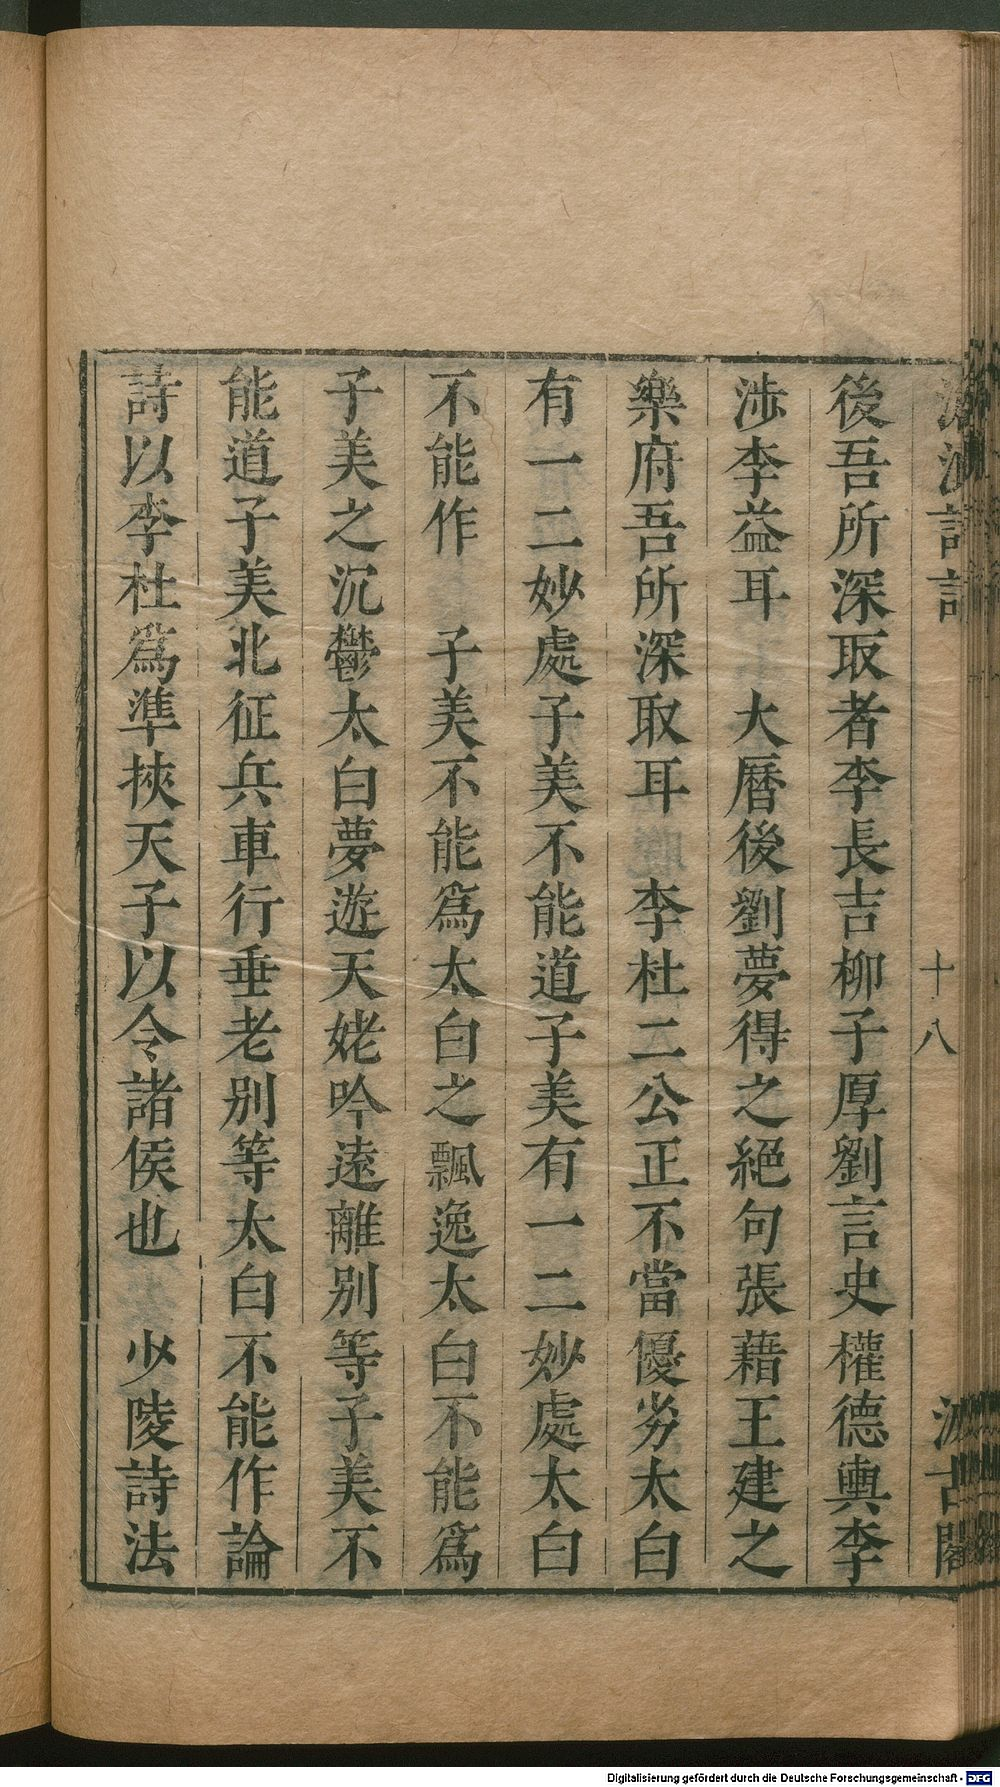 滄浪詩話
十八
汲古閣
後吾所深取者李長吉柳子厚劉言史權德輿李
涉李益耳　大曆後劉夢得之絕句張藉王建之
樂府吾所深取耳　李杜二公正不當優劣太白
有一二妙處子美不能道子美有一二妙處太白
不能作　子美不能爲太白之飄逸太白不能爲
子美之沉鬱太白夢遊天姥吟遠離别等子美不
能道子美北征兵車行垂老别等太白不能作論
詩以李杜爲準挾天子以令諸侯也　少陵詩法
Digitalisierung gefördert durch die Deutsche Forschungsgemeinschaft - DFG